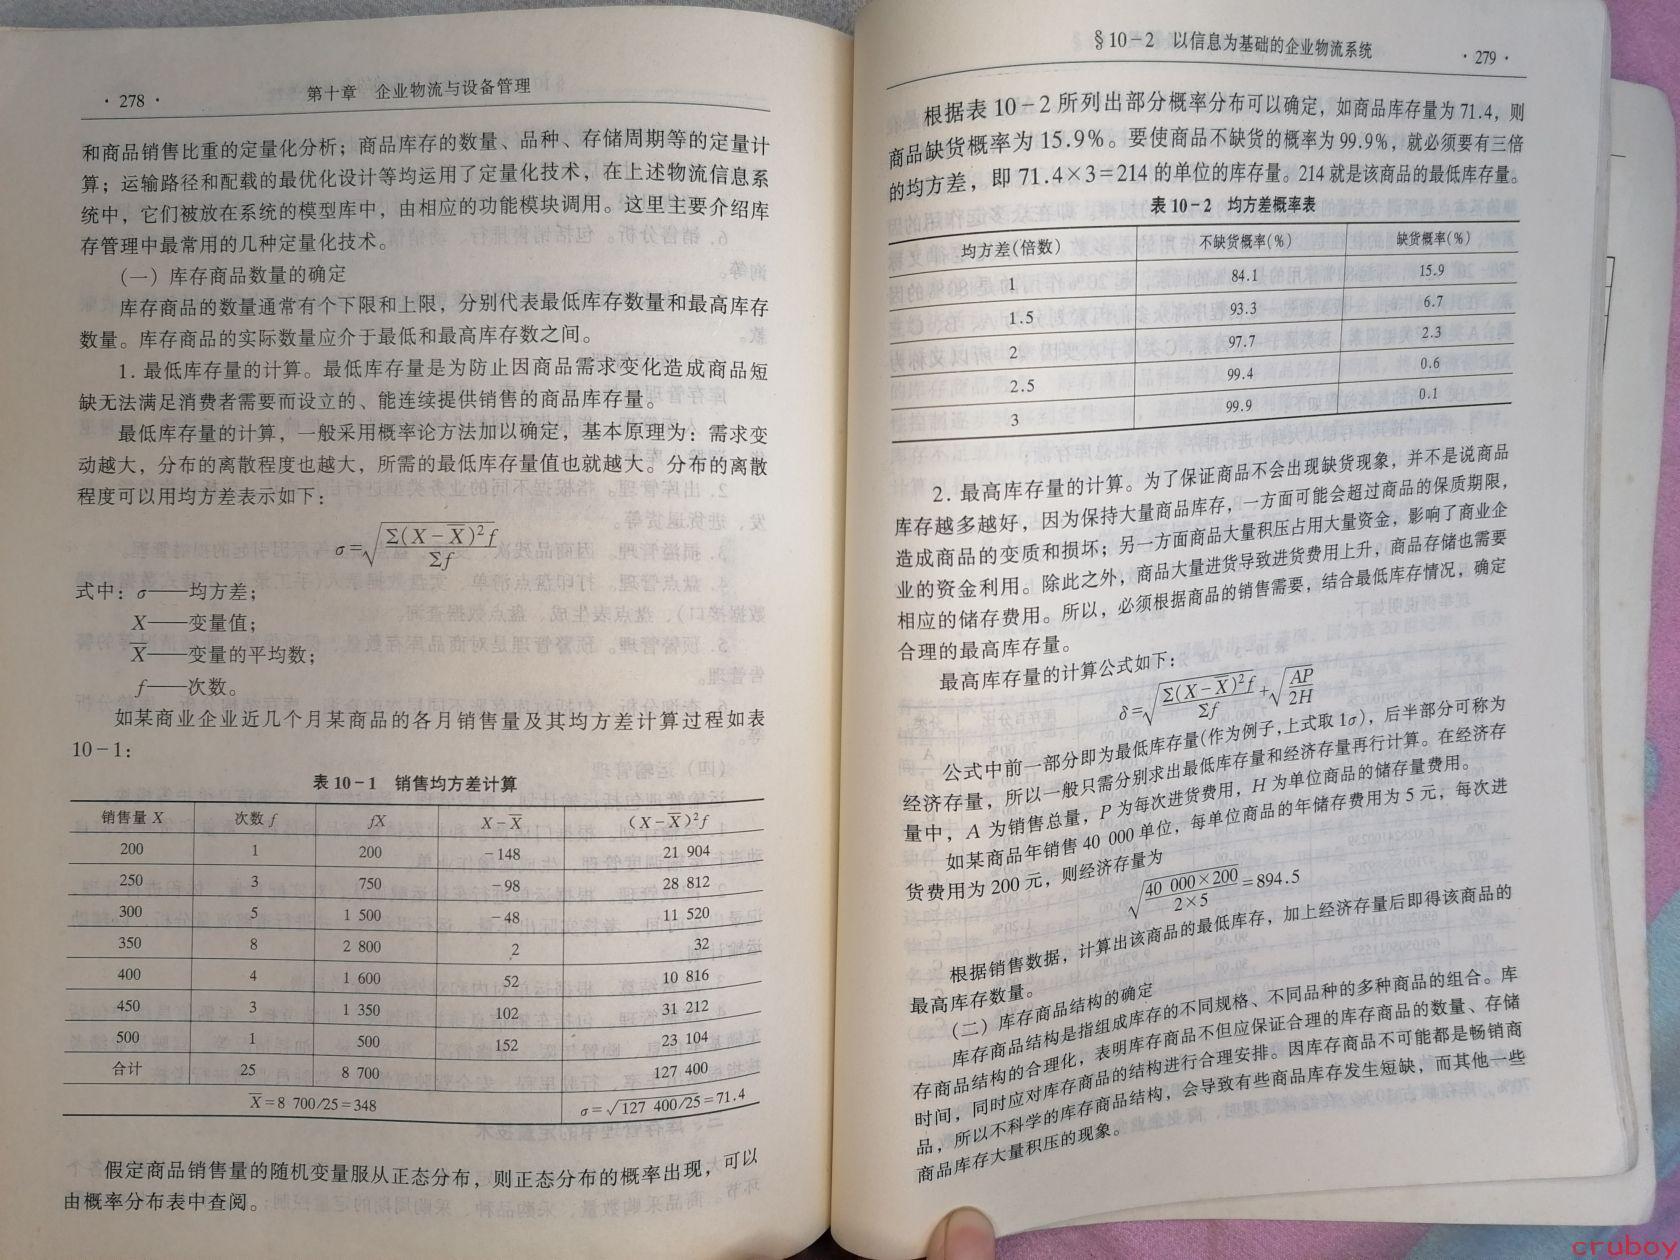 · 278 ·
第十章 企业物流与设备管理
和商品销售比重的定量化分析；商品库存的数量、品种、存储周期等的定量计
算；运输路径和配载的最优化设计等均运用了定量化技术，在上述物流信息系
统中，它们被放在系统的模型库中，由相应的功能模块调用。这里主要介绍库
存管理中最常用的几种定量化技术。
（一）库存商品数量的确定
库存商品的数量通常有个下限和上限，分别代表最低库存数量和最高库存
数量。库存商品的实际数量应介于最低和最高库存数之间。
1. 最低库存量的计算。最低库存量是为防止因商品需求变化造成商品短
缺无法满足消费者需要而设立的、能连续提供销售的商品库存量。
最低库存量的计算，一般采用概率论方法加以确定，基本原理为：需求变
动越大，分布的离散程度也越大，所需的最低库存量值也就越大。分布的离散
程度可以用均方差表示如下：
σ=√(Σ(X－X̄)²f/Σf)
式中：σ——均方差；
X——变量值；
X̄——变量的平均数；
f——次数。
如某商业企业近几个月某商品的各月销售量及其均方差计算过程如表
10－1：
表 10－1 销售均方差计算
销售量 X 次数 f fX X－X̄ （X－X̄）²f
200 1 200 －148 21 904
250 3 750 －98 28 812
300 5 1 500 －48 11 520
350 8 2 800 2 32
400 4 1 600 52 10 816
450 3 1 350 102 31 212
500 1 500 152 23 104
合计 25 8 700 127 400
X̄＝8 700/25＝348 σ＝√127 400/25＝71.4
假定商品销售量的随机变量服从正态分布，则正态分布的概率出现，可以
由概率分布表中查阅。
§10－2 以信息为基础的企业物流系统
· 279 ·
根据表 10－2 所列出部分概率分布可以确定，如商品库存量为 71.4，则
商品缺货概率为 15.9%。要使商品不缺货的概率为 99.9%，就必须要有三倍
的均方差，即 71.4×3＝214 的单位的库存量。214 就是该商品的最低库存量。
表 10－2 均方差概率表
均方差(倍数) 不缺货概率(%) 缺货概率(%)
1 84.1 15.9
1.5 93.3 6.7
2 97.7 2.3
2.5 99.4 0.6
3 99.9 0.1
2. 最高库存量的计算。为了保证商品不会出现缺货现象，并不是说商品
库存越多越好，因为保持大量商品库存，一方面可能会超过商品的保质期限，
造成商品的变质和损坏；另一方面商品大量积压占用大量资金，影响了商业企
业的资金利用。除此之外，商品大量进货导致进货费用上升，商品存储也需要
相应的储存费用。所以，必须根据商品的销售需要，结合最低库存情况，确定
合理的最高库存量。
最高库存量的计算公式如下：
δ=√(Σ(X－X̄)²f/Σf)+√(AP/2H)
公式中前一部分即为最低库存量(作为例子,上式取 1σ)，后半部分可称为
经济存量，所以一般只需分别求出最低库存量和经济存量再行计算。在经济存
量中，A 为销售总量，P 为每次进货费用，H 为单位商品的储存量费用。
如某商品年销售 40 000 单位，每单位商品的年储存费用为 5 元，每次进
货费用为 200 元，则经济存量为
√(40 000×200/2×5)=894.5
根据销售数据，计算出该商品的最低库存，加上经济存量后即得该商品的
最高库存数量。
（二）库存商品结构的确定
库存商品结构是指组成库存的不同规格、不同品种的多种商品的组合。库
存商品结构的合理化，表明库存商品不但应保证合理的库存商品的数量、存储
时间，同时应对库存商品的结构进行合理安排。因库存商品不可能都是畅销商
品，所以不科学的库存商品结构，会导致有些商品库存发生短缺，而其他一些
商品库存大量积压的现象。
cruboy